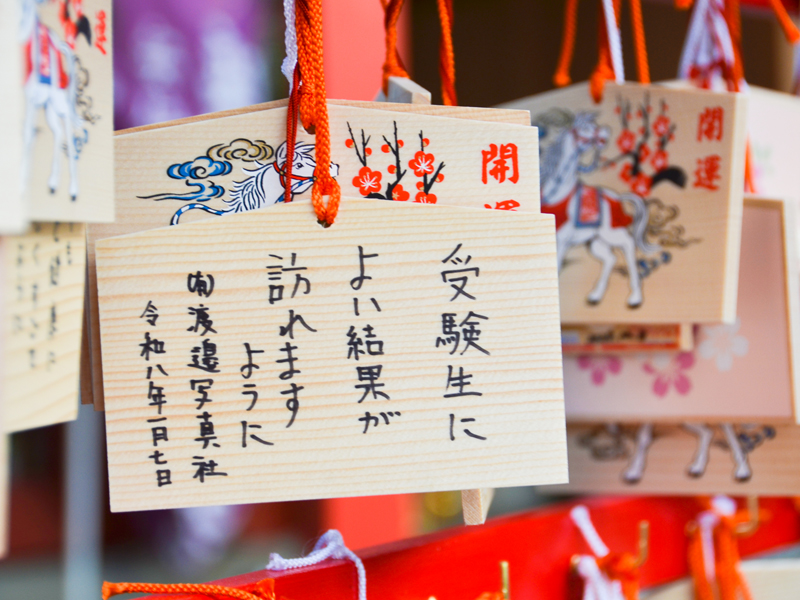 受験生に
よい結果が
訪れます
ように
㈲渡邉写真社
令和八年一月七日
開運
開運